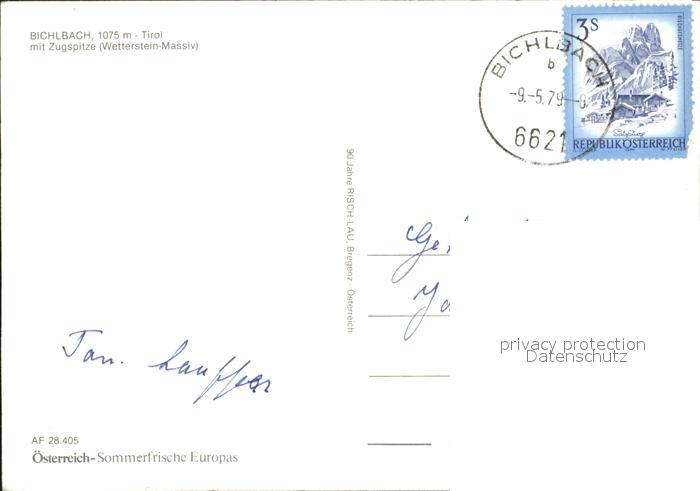 BICHLBACH, 1075 m - Tirol
mit Zugspitze (Wetterstein-Massiv)
BICHLBACH
b
-9.-5.79-
6621
3S
REPUBLIK ÖSTERREICH
90 Jahre RISCH-LAU, Bregenz - Österreich
privacy protection
Datenschutz
Fam. Lauffer
AF 28.405
Österreich-Sommerfrische Europas